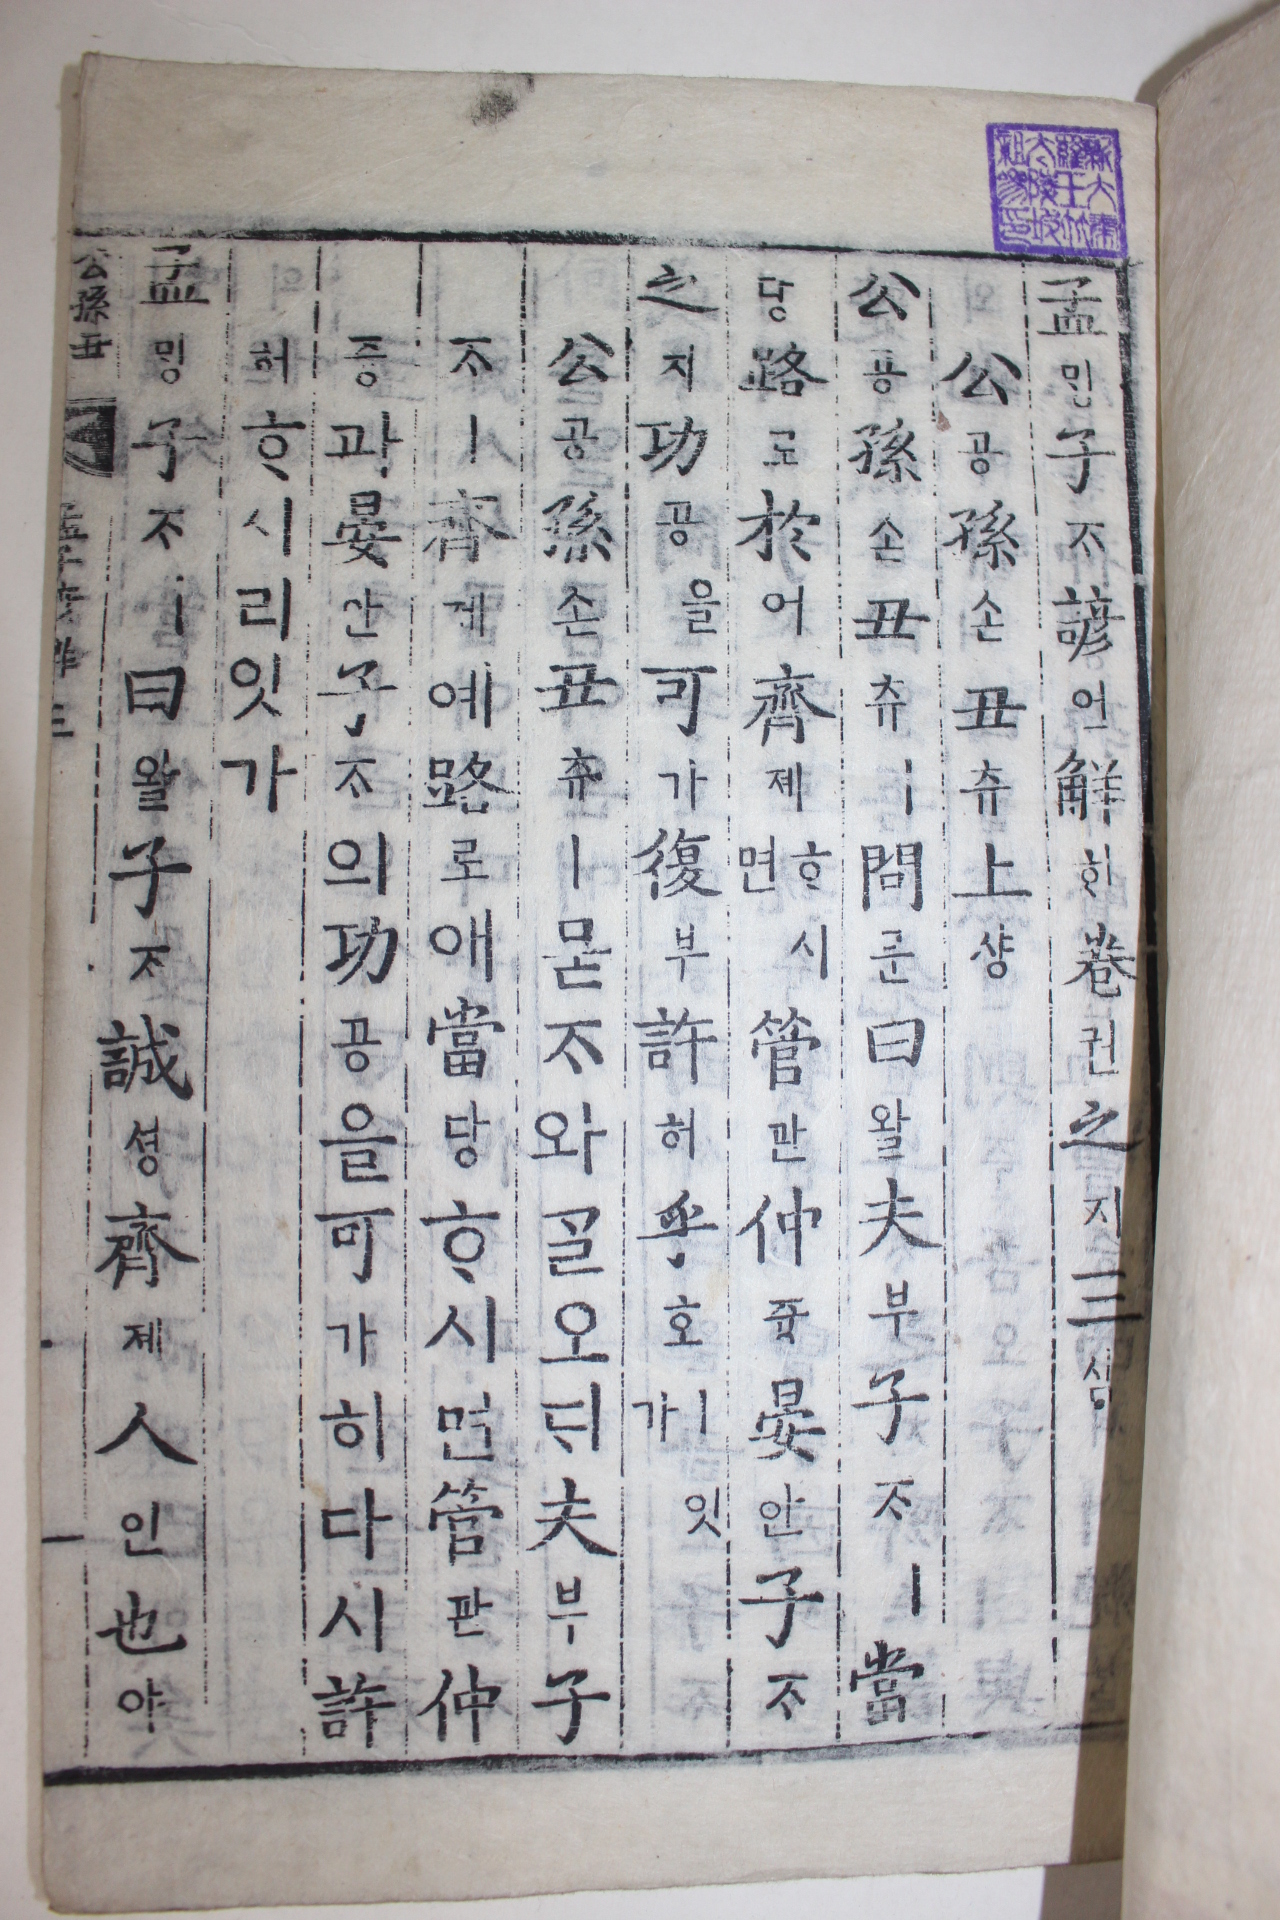 孟밍子ᄌᆞ諺언解ᄒᆡ卷권之지三삼
公공孫손丑츄上샹
公공孫손丑츄ㅣ問문曰왈夫부子ᄌᆞㅣ當
당路로於어齊졔ᄒᆞ시면管관仲듕晏안子ᄌᆞ
之지功공을可가復부許허乎호ㅣ잇가
公공孫손丑츄ㅣ묻ᄌᆞ와ᄀᆞᆯ오ᄃᆡ夫부子
ᄌᆞㅣ齊졔예路로애當당ᄒᆞ시면管관仲
즁과晏안子ᄌᆞ의功공을可가히다시許
허ᄒᆞ시리잇가
孟밍子ᄌᆞㅣ曰왈子ᄌᆞ誠셩齊졔人인也야
公孫丑